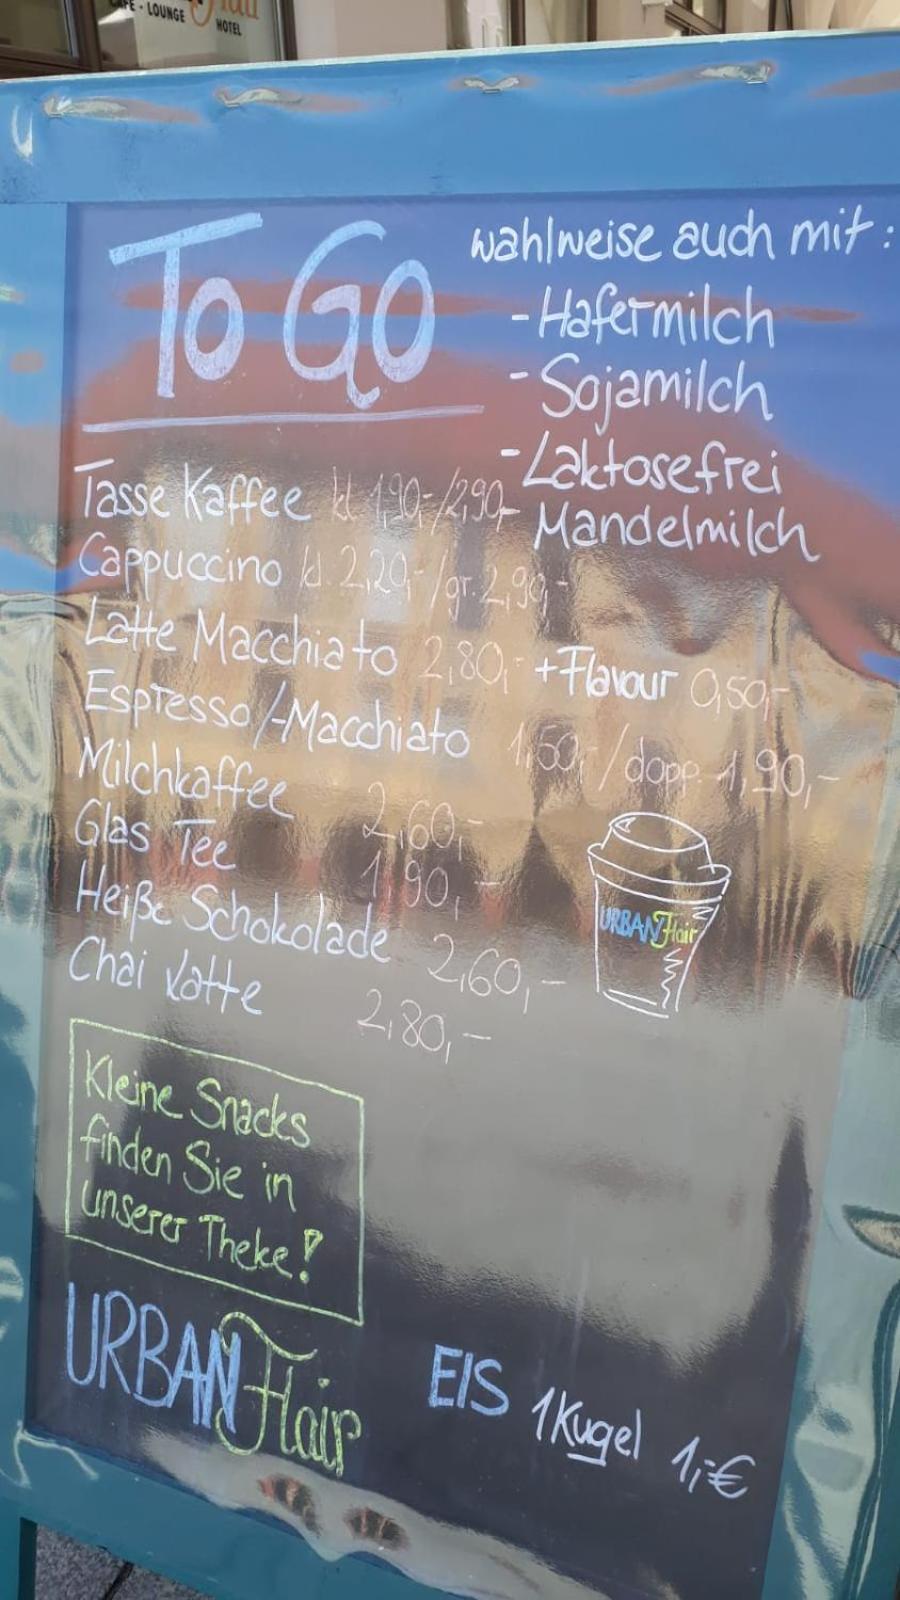 CAFE · LOUNGE
HOTEL
To Go
wahlweise auch mit:
- Hafermilch
- Sojamilch
- Laktosefrei
- Mandelmilch
Tasse Kaffee kl. 1,90,-/2,90,-
Cappuccino kl. 2,20,-/gr. 2,90,-
Latte Macchiato 2,80,- + Flavour 0,50,-
Espresso/-Macchiato 1,50,-/dopp. 1,90,-
Milchkaffee 2,60,-
Glas Tee 1,90,-
Heiße Schokolade 2,60,-
Chai Latte 2,80,-
URBAN Flair
Kleine Snacks
finden Sie in
unserer Theke!
URBAN Flair
EIS 1 Kugel 1,-€